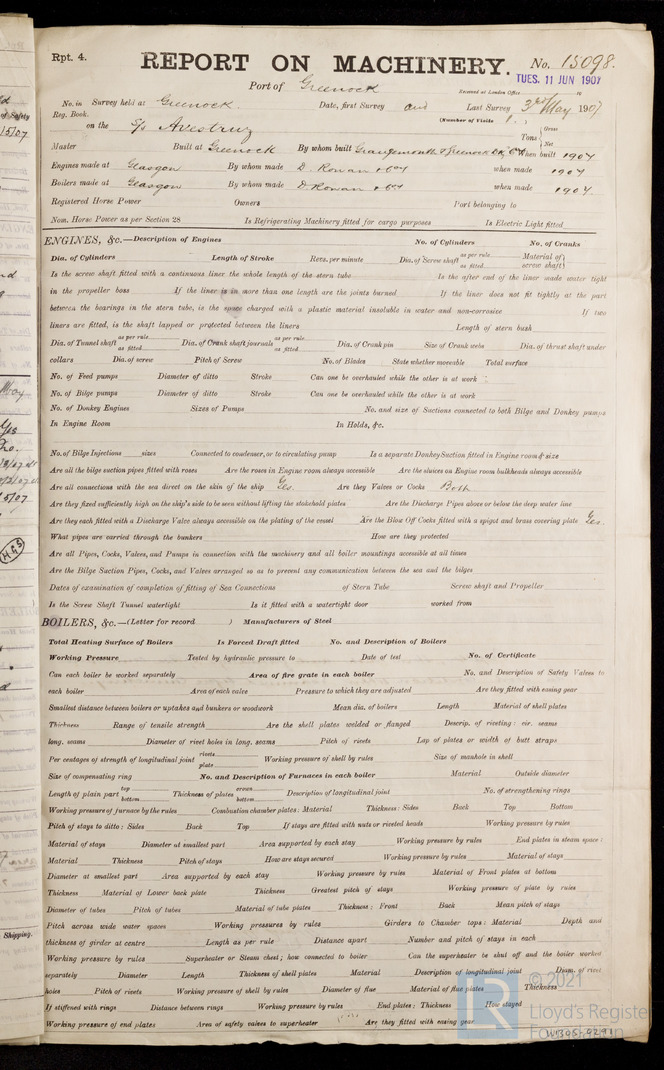 Rpt. 4.
REPORT ON MACHINERY. No. 15098.
Port of Greenock
Received at London Office TUES. 11 JUN 1907
No. in Survey held at Greenock. Date, first Survey and Last Survey 3rd May 1907
Reg. Book. (Number of Visits 1.)
on the S/s Avestruz Tons { Gross Net
Master Built at Greenock By whom built Grangemouth & Greenock Dk. Co When built 1907
Engines made at Glasgow By whom made D. Rowan & Co when made 1907
Boilers made at Glasgow By whom made D. Rowan & Co when made 1907.
Registered Horse Power Owners Port belonging to
Nom. Horse Power as per Section 28 Is Refrigerating Machinery fitted for cargo purposes Is Electric Light fitted
ENGINES, &c.—Description of Engines No. of Cylinders No. of Cranks
Dia. of Cylinders Length of Stroke Revs. per minute Dia. of Screw shaft as per rule as fitted Material of screw shaft
Is the screw shaft fitted with a continuous liner the whole length of the stern tube Is the after end of the liner made water tight
in the propeller boss If the liner is in more than one length are the joints burned If the liner does not fit tightly at the part
between the bearings in the stern tube, is the space charged with a plastic material insoluble in water and non-corrosive If two
liners are fitted, is the shaft lapped or protected between the liners Length of stern bush
Dia. of Tunnel shaft as per rule as fitted Dia. of Crank shaft journals as per rule as fitted Dia. of Crank pin Size of Crank webs Dia. of thrust shaft under
collars Dia. of screw Pitch of Screw No. of Blades State whether moveable Total surface
No. of Feed pumps Diameter of ditto Stroke Can one be overhauled while the other is at work
No. of Bilge pumps Diameter of ditto Stroke Can one be overhauled while the other is at work
No. of Donkey Engines Sizes of Pumps No. and size of Suctions connected to both Bilge and Donkey pumps
In Engine Room In Holds, &c.
No. of Bilge Injections sizes Connected to condenser, or to circulating pump Is a separate Donkey Suction fitted in Engine room & size
Are all the bilge suction pipes fitted with roses Are the roses in Engine room always accessible Are the sluices on Engine room bulkheads always accessible
Are all connections with the sea direct on the skin of the ship Yes. Are they Valves or Cocks Both
Are they fixed sufficiently high on the ship's side to be seen without lifting the stokehold plates Are the Discharge Pipes above or below the deep water line
Are they each fitted with a Discharge Valve always accessible on the plating of the vessel Are the Blow Off Cocks fitted with a spigot and brass covering plate Yes.
What pipes are carried through the bunkers How are they protected
Are all Pipes, Cocks, Valves, and Pumps in connection with the machinery and all boiler mountings accessible at all times
Are the Bilge Suction Pipes, Cocks, and Valves arranged so as to prevent any communication between the sea and the bilges
Dates of examination of completion of fitting of Sea Connections of Stern Tube Screw shaft and Propeller
Is the Screw Shaft Tunnel watertight Is it fitted with a watertight door worked from
BOILERS, &c.—(Letter for record ) Manufacturers of Steel
Total Heating Surface of Boilers Is Forced Draft fitted No. and Description of Boilers
Working Pressure Tested by hydraulic pressure to Date of test No. of Certificate
Can each boiler be worked separately Area of fire grate in each boiler No. and Description of Safety Valves to
each boiler Area of each valve Pressure to which they are adjusted Are they fitted with easing gear
Smallest distance between boilers or uptakes and bunkers or woodwork Mean dia. of boilers Length Material of shell plates
Thickness Range of tensile strength Are the shell plates welded or flanged Descrip. of riveting: cir. seams
long. seams Diameter of rivet holes in long. seams Pitch of rivets Lap of plates or width of butt straps
Per centages of strength of longitudinal joint rivets plate Working pressure of shell by rules Size of manhole in shell
Size of compensating ring No. and Description of Furnaces in each boiler Material Outside diameter
Length of plain part top bottom Thickness of plates crown bottom Description of longitudinal joint No. of strengthening rings
Working pressure of furnace by the rules Combustion chamber plates: Material Thickness: Sides Back Top Bottom
Pitch of stays to ditto: Sides Back Top If stays are fitted with nuts or riveted heads Working pressure by rules
Material of stays Diameter at smallest part Area supported by each stay Working pressure by rules End plates in steam space:
Material Thickness Pitch of stays How are stays secured Working pressure by rules Material of stays
Diameter at smallest part Area supported by each stay Working pressure by rules Material of Front plates at bottom
Thickness Material of Lower back plate Thickness Greatest pitch of stays Working pressure of plate by rules
Diameter of tubes Pitch of tubes Material of tube plates Thickness: Front Back Mean pitch of stays
Pitch across wide water spaces Working pressures by rules Girders to Chamber tops: Material Depth and
thickness of girder at centre Length as per rule Distance apart Number and pitch of stays in each
Working pressure by rules Superheater or Steam chest; how connected to boiler Can the superheater be shut off and the boiler worked
separately Diameter Length Thickness of shell plates Material Description of longitudinal joint Diam. of rivet
holes Pitch of rivets Working pressure of shell by rules Diameter of flue Material of flue plates Thickness
If stiffened with rings Distance between rings Working pressure by rules End plates: Thickness How stayed
Working pressure of end plates Area of safety valves to superheater Are they fitted with easing gear
© 2021
Lloyd's Register
Foundation
W1305-0291